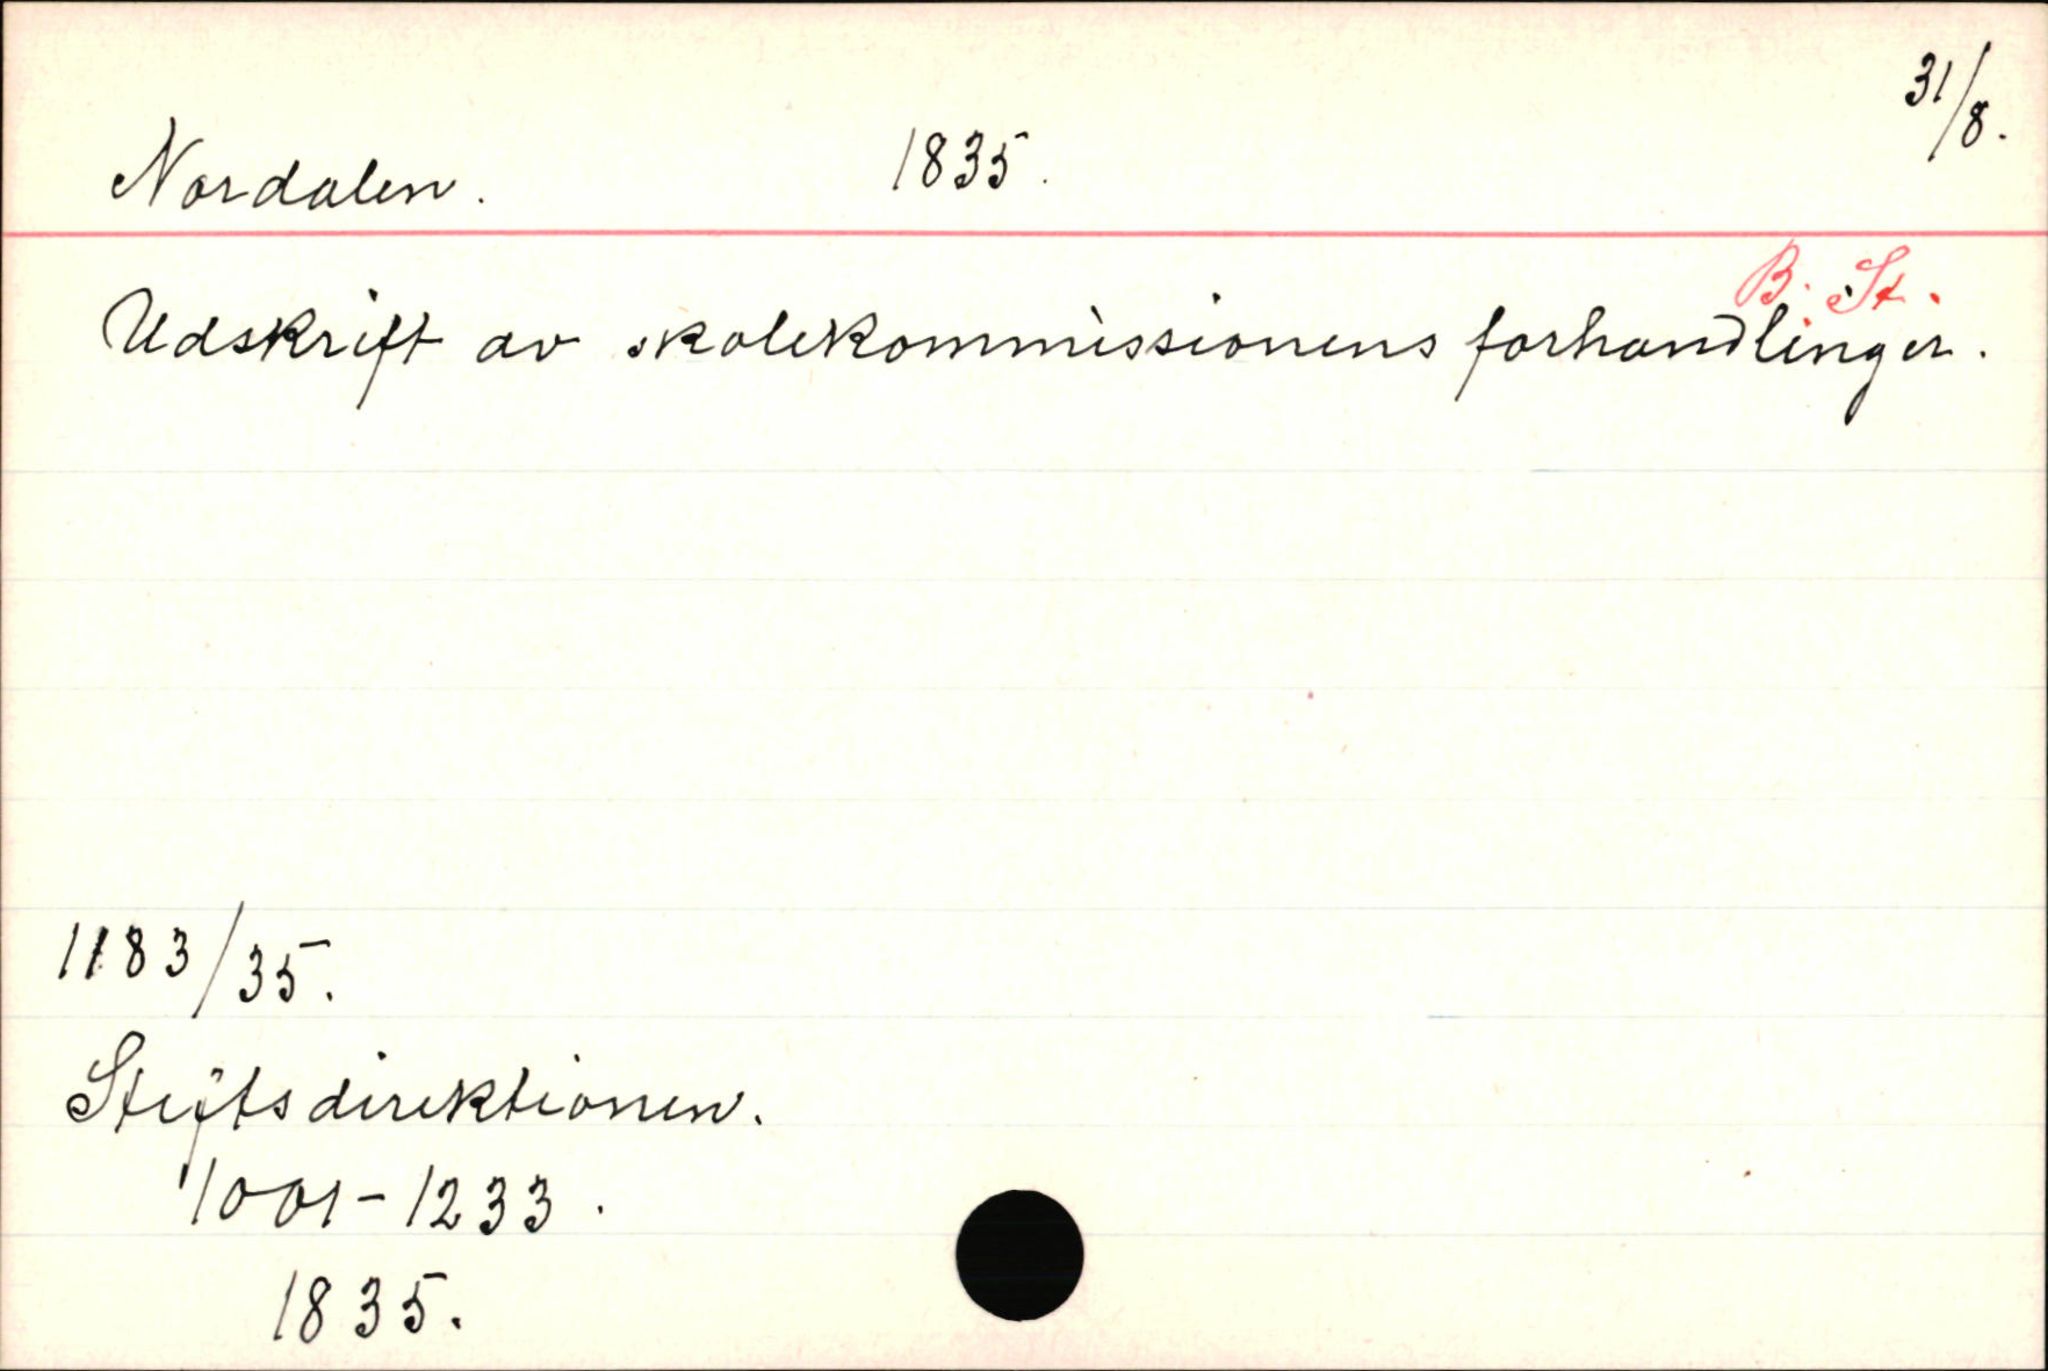 31/8.
Nordalen. 1835.
B. St.
Udskrift av skolekommissionens forhandlinger.
1183/35.
Stiftsdirektionen.
1001-1233.
1835.